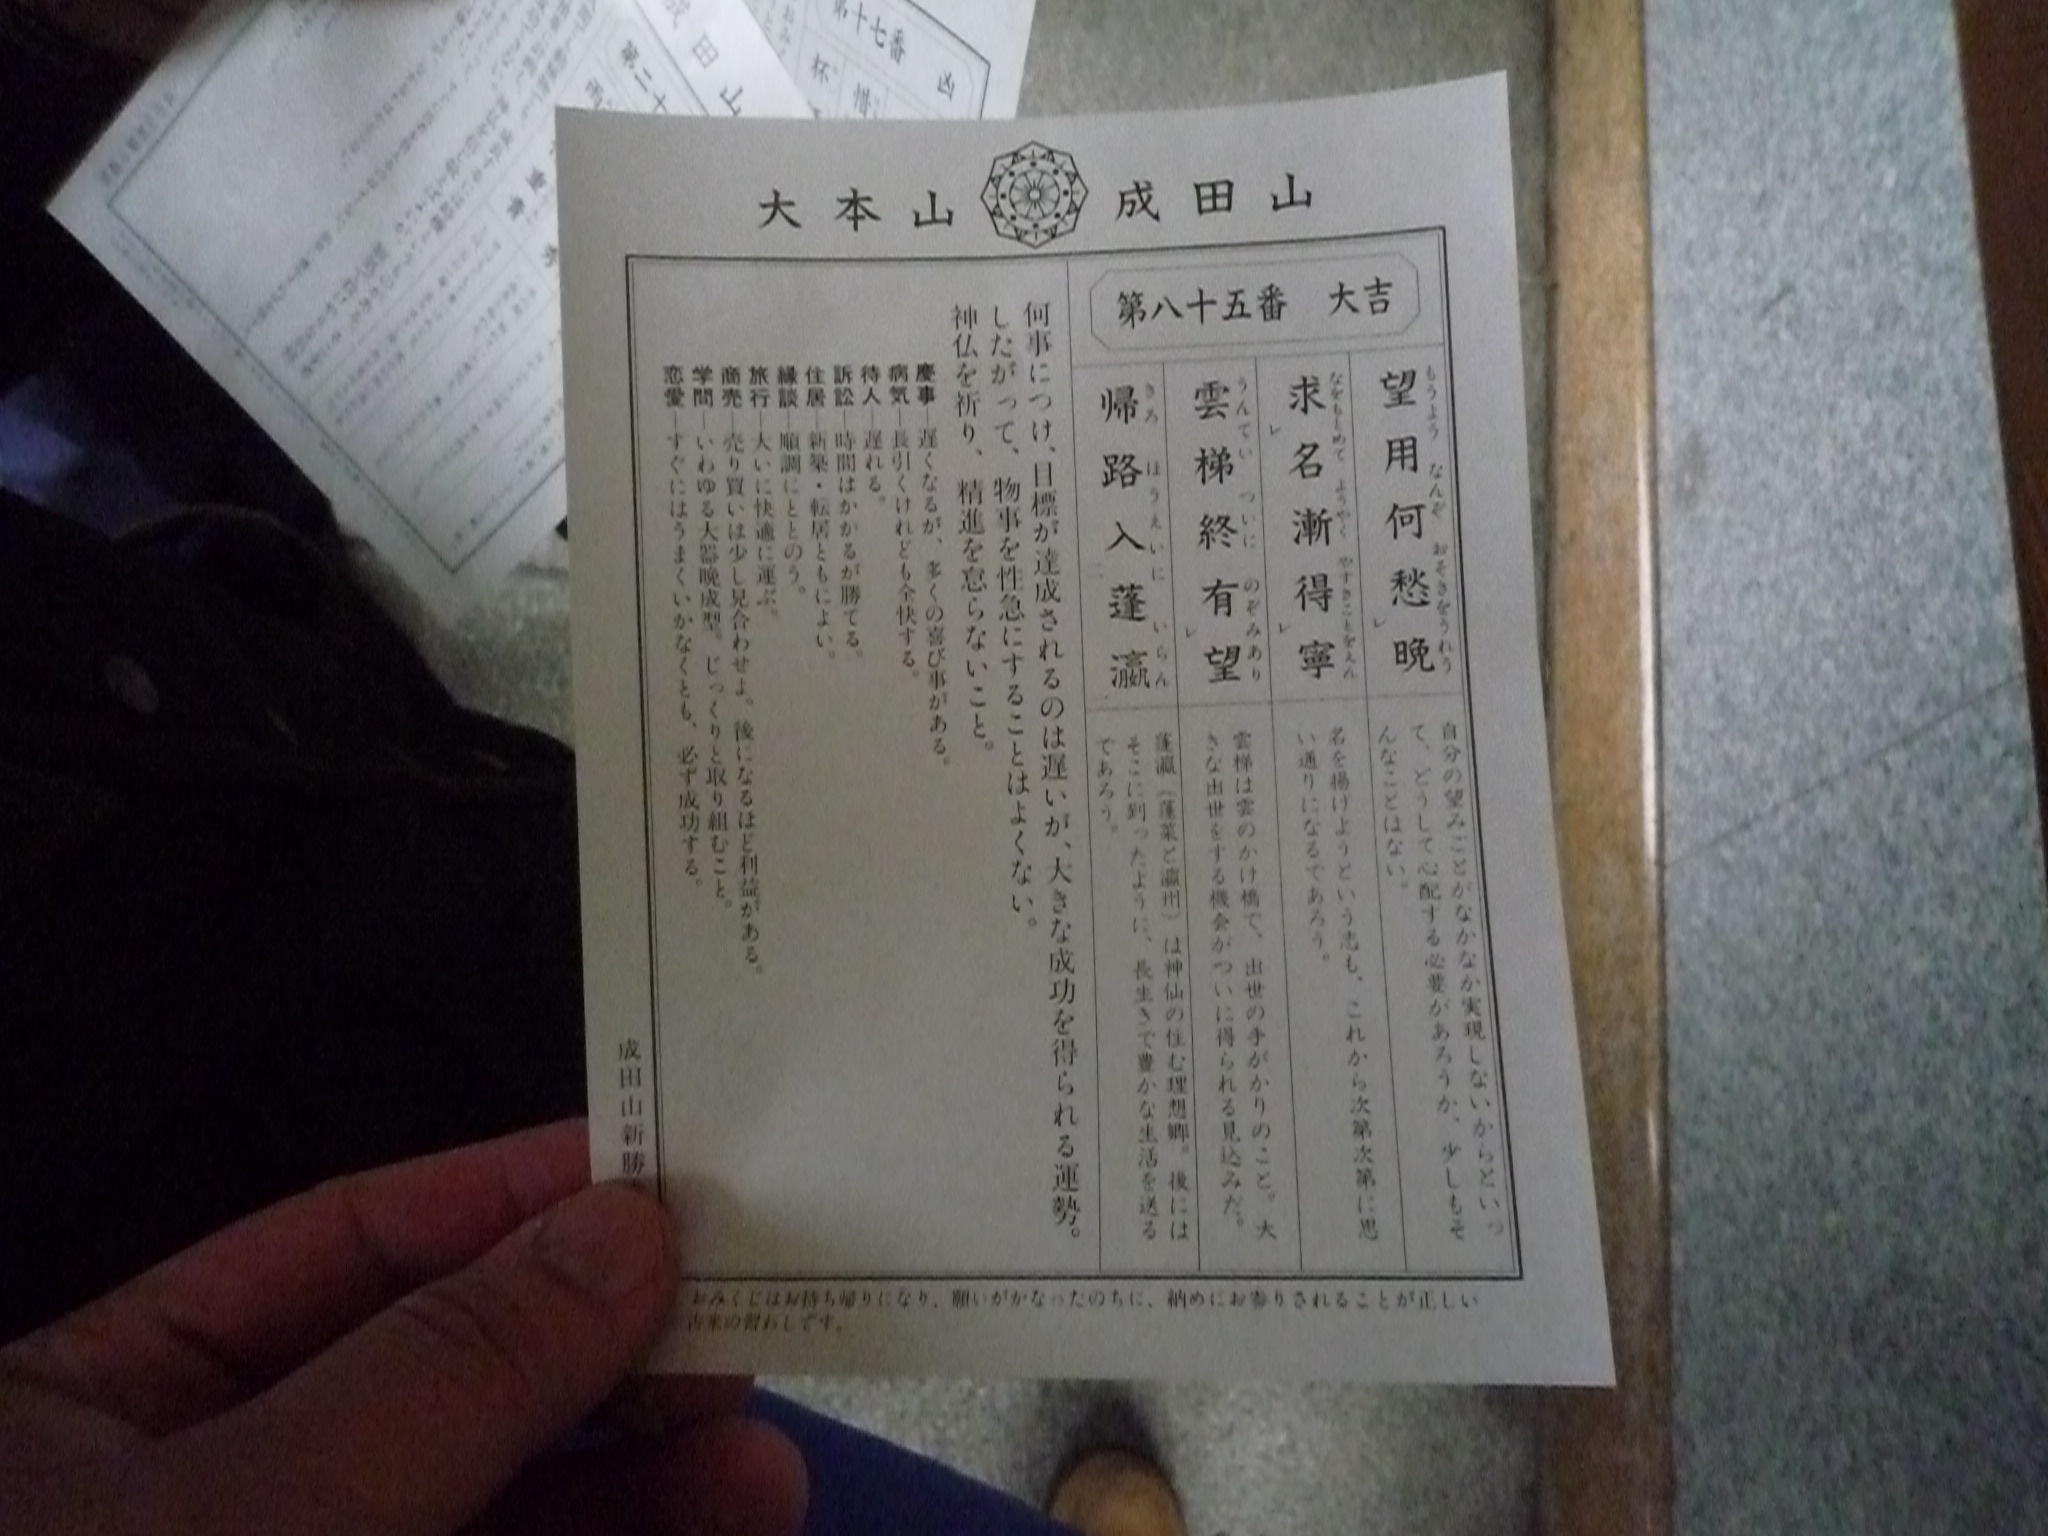 大本山 成田山
第八十五番 大吉
望用何愁晩
もうよう なんぞ おそきをうれう
自分の望みごとがなかなか実現しないからといっ
て、どうして心配する必要があろうか、少しもそ
んなことはない。
求名漸得寧
なをもとめて ようやく やすきことをえん
名を揚げようという志も、これから次第次第に思
い通りになるであろう。
雲梯終有望
うんてい ついに のぞみあり
雲梯は雲のかけ橋で、出世の手がかりのこと。大
きな出世をする機会がついに得られる見込みだ。
帰路入蓬瀛
きろ ほうえいに いらん
蓬瀛（蓬莱と瀛州）は神仙の住む理想郷。後には
そこに到ったように、長生きで豊かな生活を送る
であろう。
何事につけ、目標が達成されるのは遅いが、大きな成功を得られる運勢。
したがって、物事を性急にすることはよくない。
神仏を祈り、精進を怠らないこと。
慶事―遅くなるが、多くの喜び事がある。
病気―長引くけれども全快する。
待人―遅れる。
訴訟―時間はかかるが勝てる。
住居―新築・転居ともによい。
縁談―順調にととのう。
旅行―大いに快適に運ぶ。
商売―売り買いは少し見合わせよ。後になるほど利益がある。
学問―いわゆる大器晩成型。じっくりと取り組むこと。
恋愛―すぐにはうまくいかなくとも、必ず成功する。
成田山新勝
おみくじはお持ち帰りになり、願いがかなったのちに、納めにお参りされることが正しい
古来の習わしです。
第十七番 凶
杯
惜
成田山
第二十